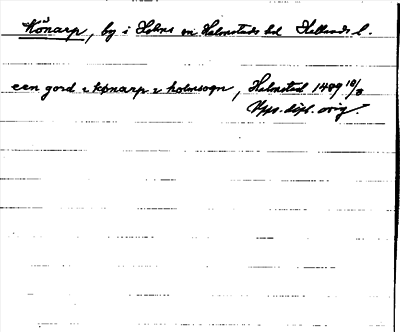 Könarp, by i Holms sn Halmstads hd Hallands l.
een gord i kønarp i holmsogn, Halmsted 1489 10/8
Upps. dipl. orig.